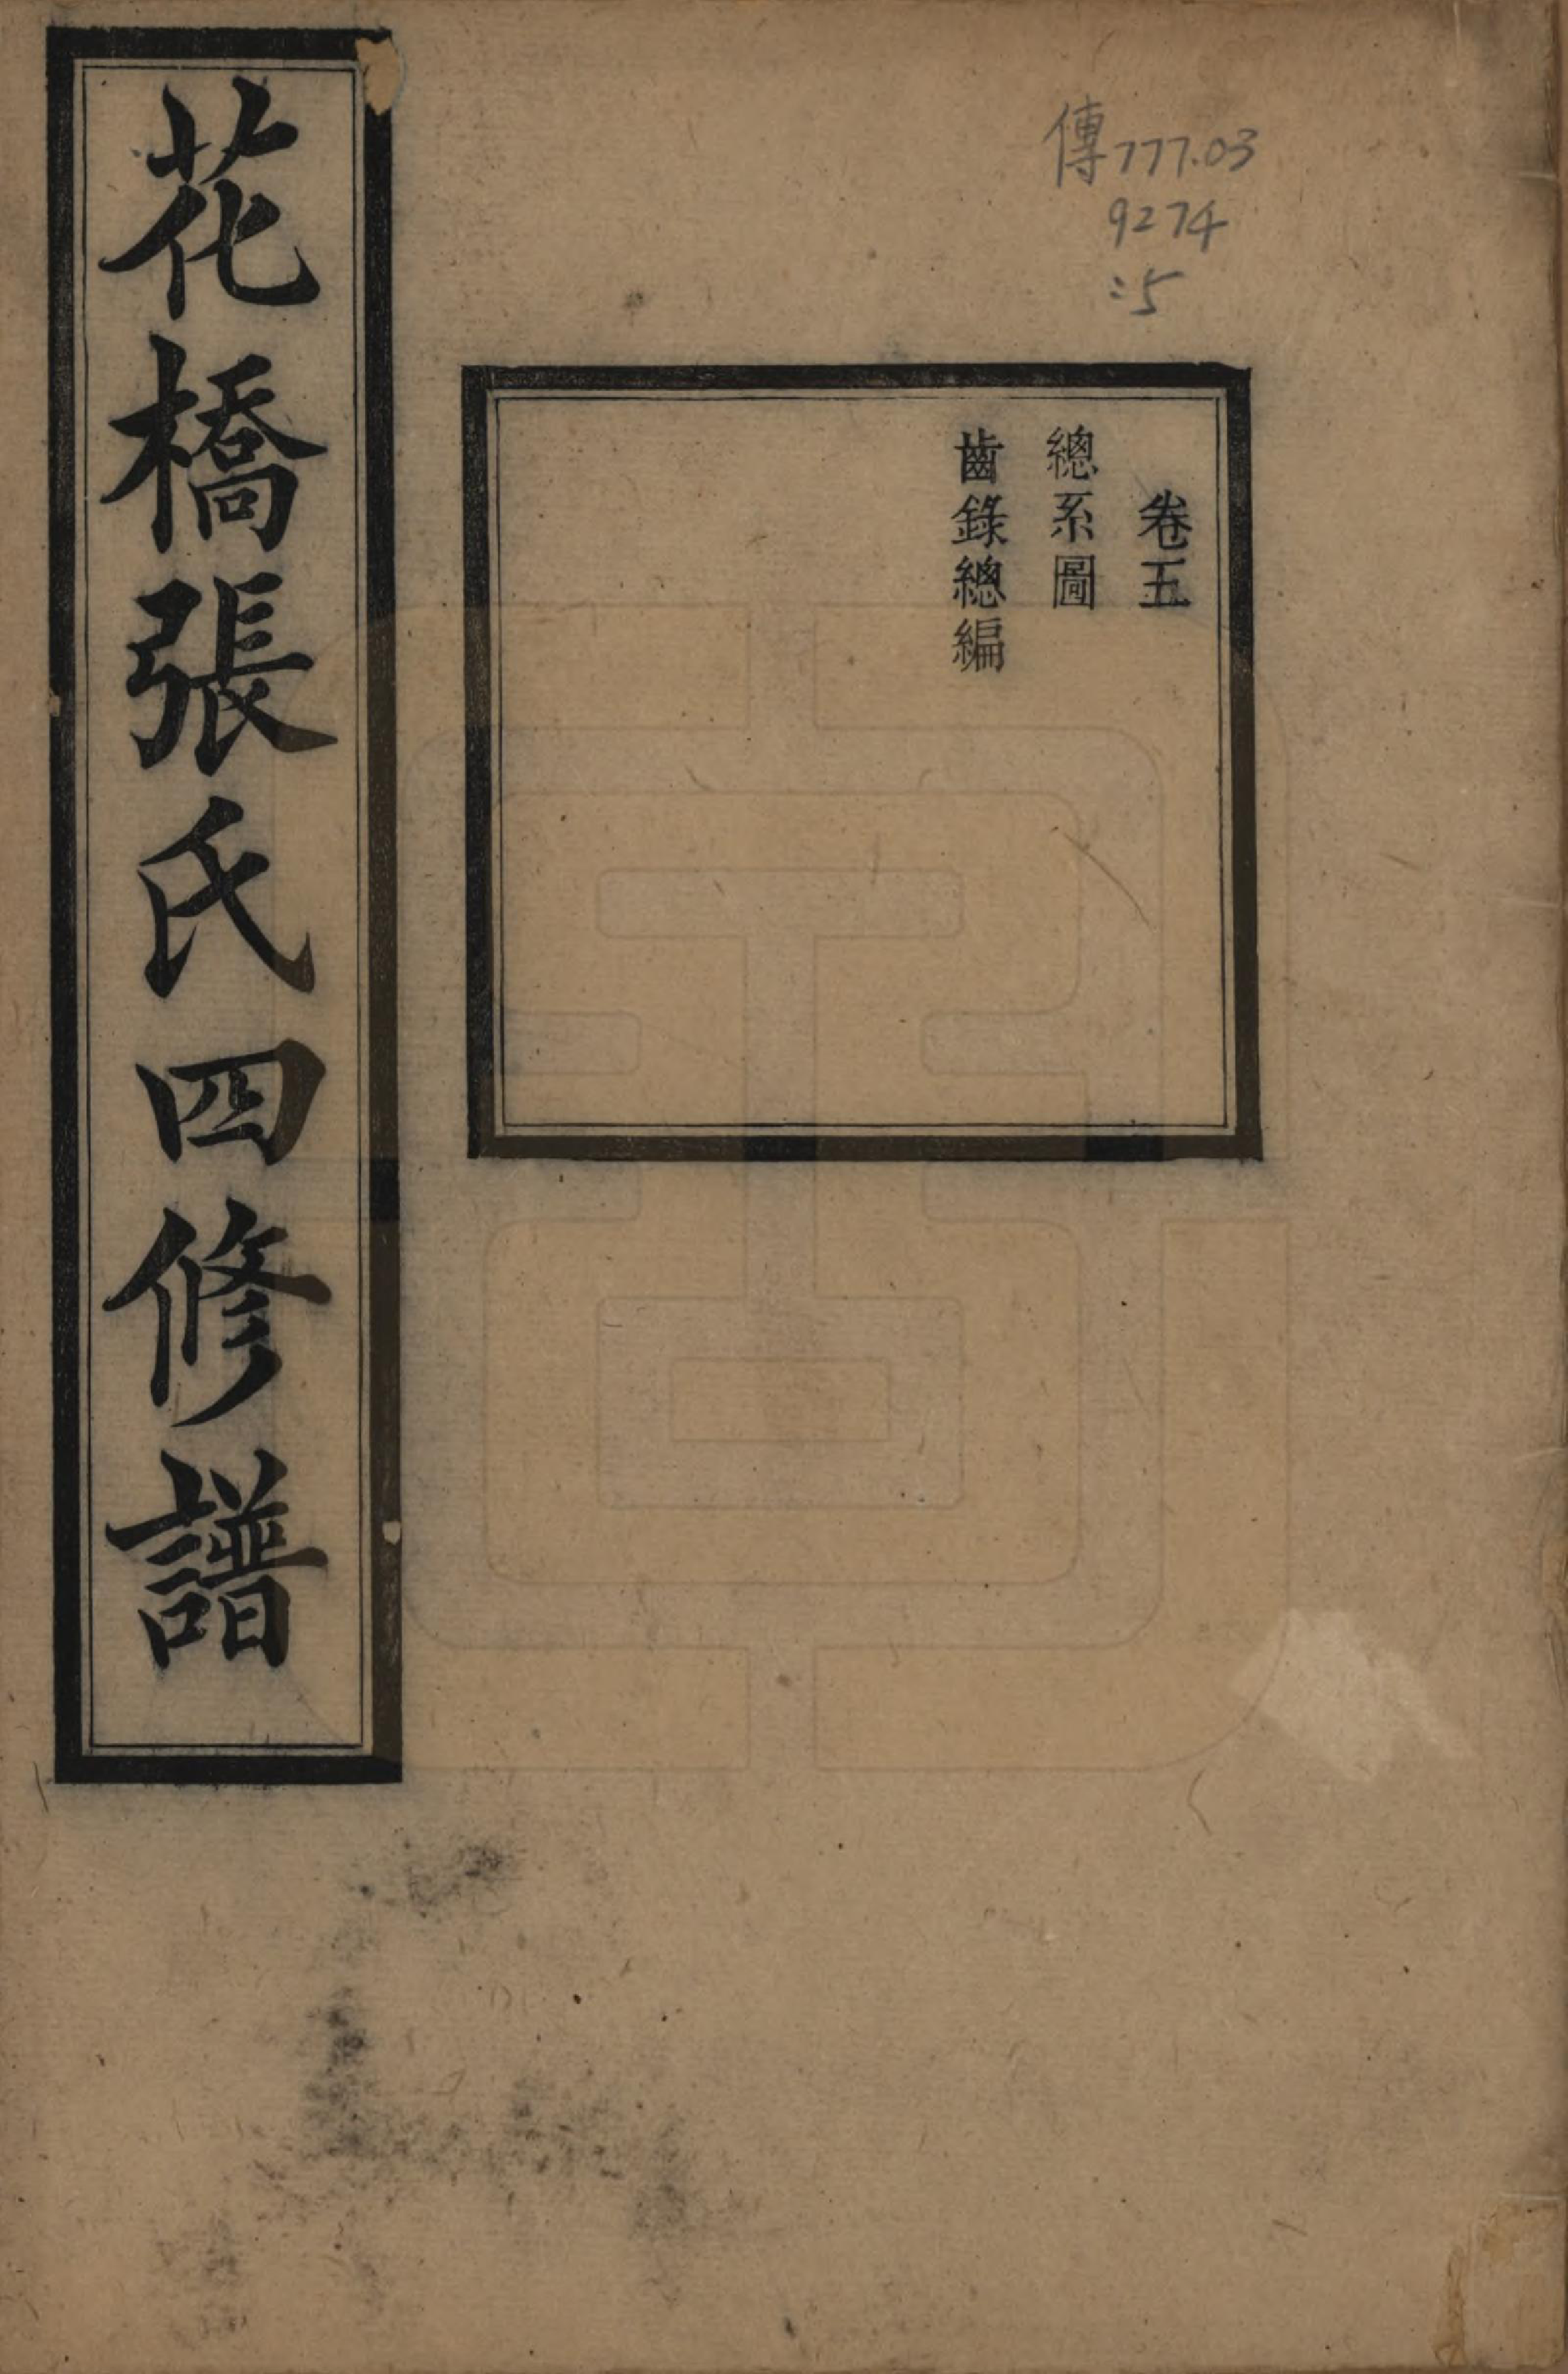 傳777.03
9274
:5
卷五
總系圖
齒錄總編
花橋張氏四修譜